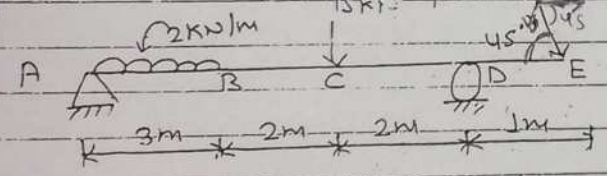 2KN/m
45° 45
A B C D E
3m 2m 2m 1m